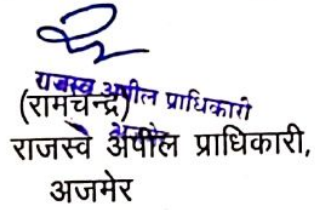 राजस्व अपील प्राधिकारी
अजमेर
(रामचन्द्र)
राजस्व अपील प्राधिकारी,
अजमेर